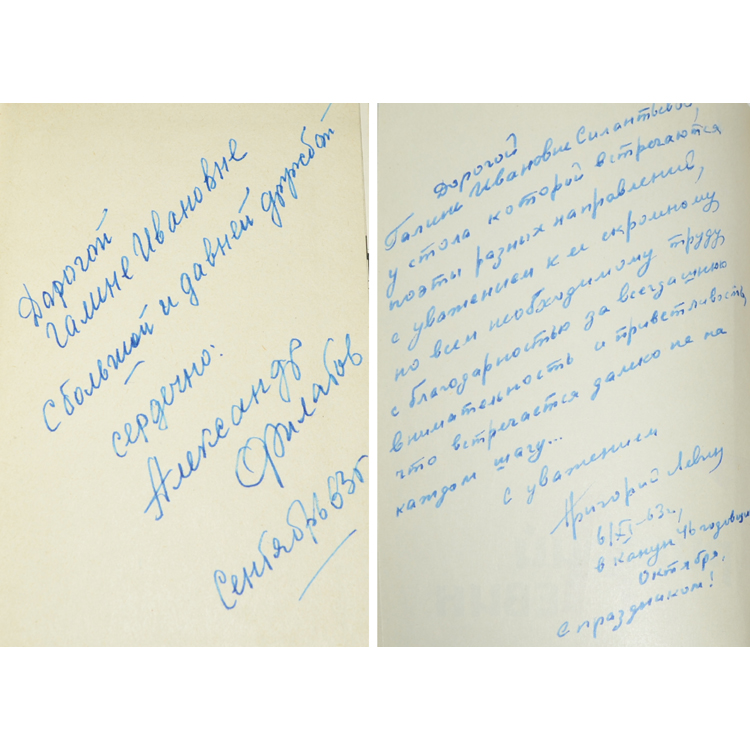 Дорогой
Галине Ивановне
с большой и давней дружбой
сердечно:
Александр
Филатов
Сентябрь 63г
Дорогой
Галине Ивановне Силантьевой,
у стола которой встречаются
поэты разных направлений,
с уважением к ее скромному
но всем необходимому труду,
с благодарностью за всегдашнюю
внимательность и приветливость,
что встречается далеко не на
каждом шагу...
С уважением
Григорий Левин
6/XI-63г.,
в канун 46 годовщины
Октября.
С праздником!